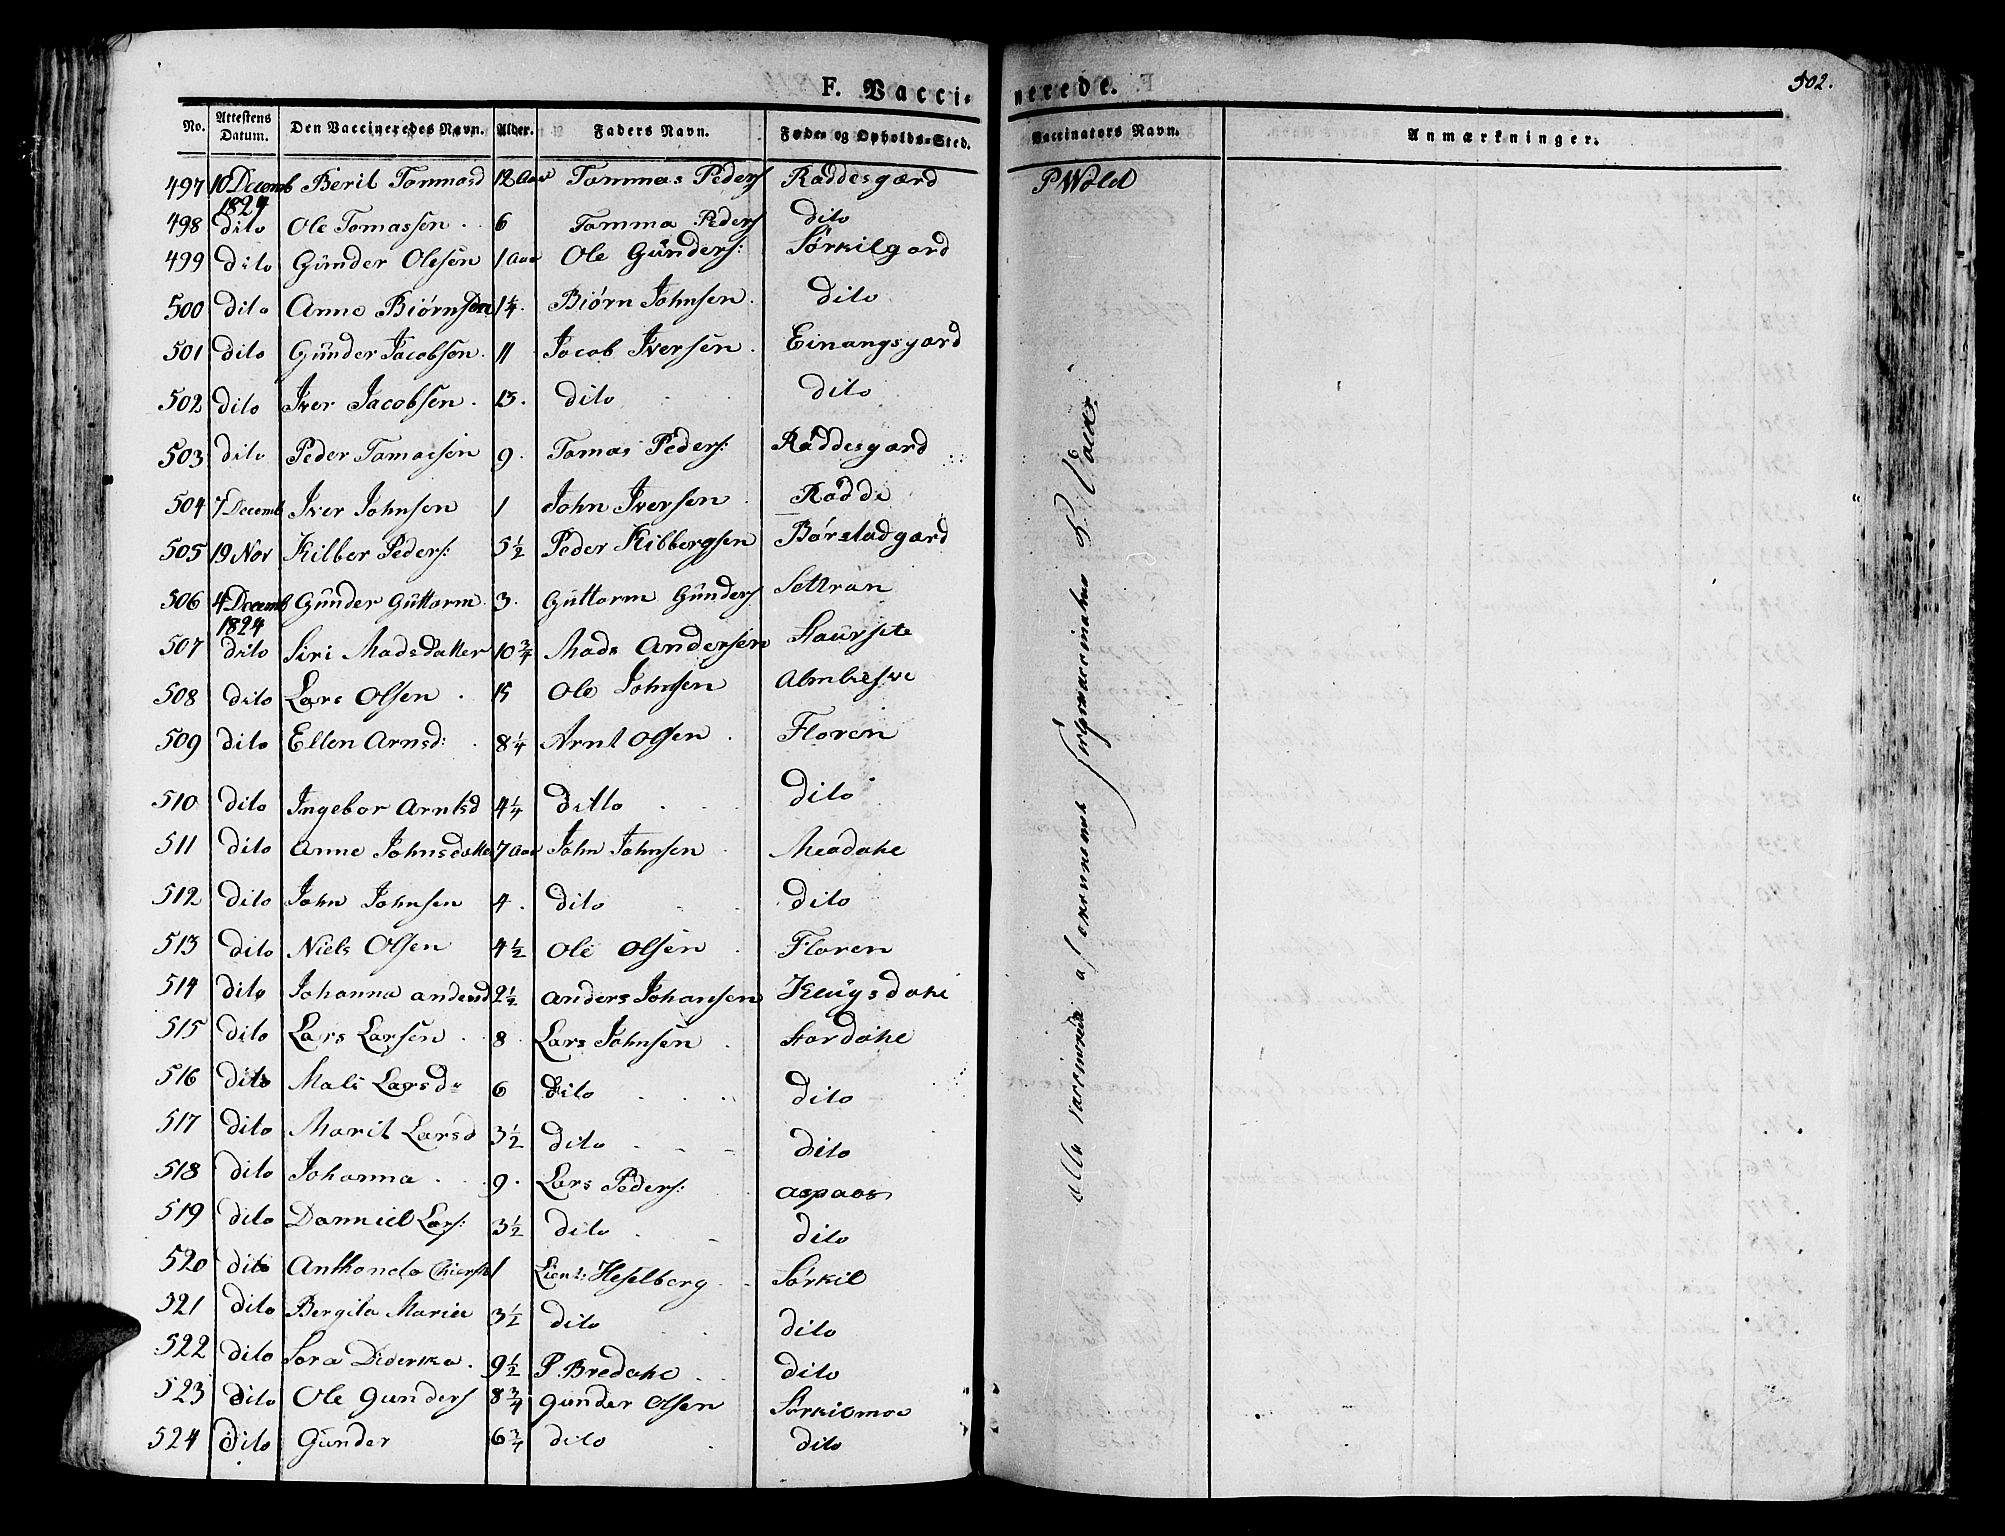 502.
F. Vacci- nerede.
No. Attestens Datum. Den Vaccineredes Navn. Alder. Faders Navn. Føde- og Opholds-Sted. Vaccinators Navn. Anmærkninger.
497 10 Decemb 1824 Beril Tommasd 12 Aar Tommas Peders Raddesgærd P Wold
498 dito Ole Tomassen 6 Tomma Peders dito
499 dito Gunder Olesen 1 Aar Ole Gunders: Sørkilgard
500 dito Anne Biørnsdan 1¼ Biørn Johnsen dito
501 dito Gunder Jacobsen 11 Jacob Iversen Einangsgærd
502 dito Iver Jacobsen 13. dito dito
503 dito Peder Tomassen 9. Tomas Peders: Raddesgærd
504 7 Decemb Iver Johnsen 1 John Iversen Radde
505 19 Nov Kilber Peders: 5½ Peder Kilbergsen Børstadgærd
506 4 Decemb 1824 Gunder Guttorm 3. Guttorm Gunders Settran
507 dito Siri Madsdatter 10¾ Mads Andersen Staursete
508 dito Lars Olsen 15 Ole Johnsen
509 dito Ellen Arnsd: 8¼ Arnt Olsen Floren
510 dito Ingebor Arntsd 4¼ ditto dito
511 dito Anne Johnsdatte 7 Aar John Johnsen Meadahe
512 dito John Johnsen 4. dito dito
513 dito Niels Olsen 4½ Ole Olsen Floren
514 dito Johanna andersd 2½ anders Johansen
515 dito Lars Larsen 8 Lars Johnsen Stordahe
516 dito Mali Larsd 6 dito dito
517 dito Marit Larsd 3½ dito dito
518 dito Johanna 9. Lars Peders: aspaas
519 dito Danniel Lars: 3½ dito dito
520 dito Anthoneta 1 Lieut: Heselberg Sørkil
521 dito Bergita Maria 3½ dito dito
522 dito Sara Diderka 9½ P. Bredahe dito
523 dito Ole Gunders 8¾ Gunder Olsen Sørkilmoe
524 dito Gunder 6¾ dito dito
alle vaccinerede af